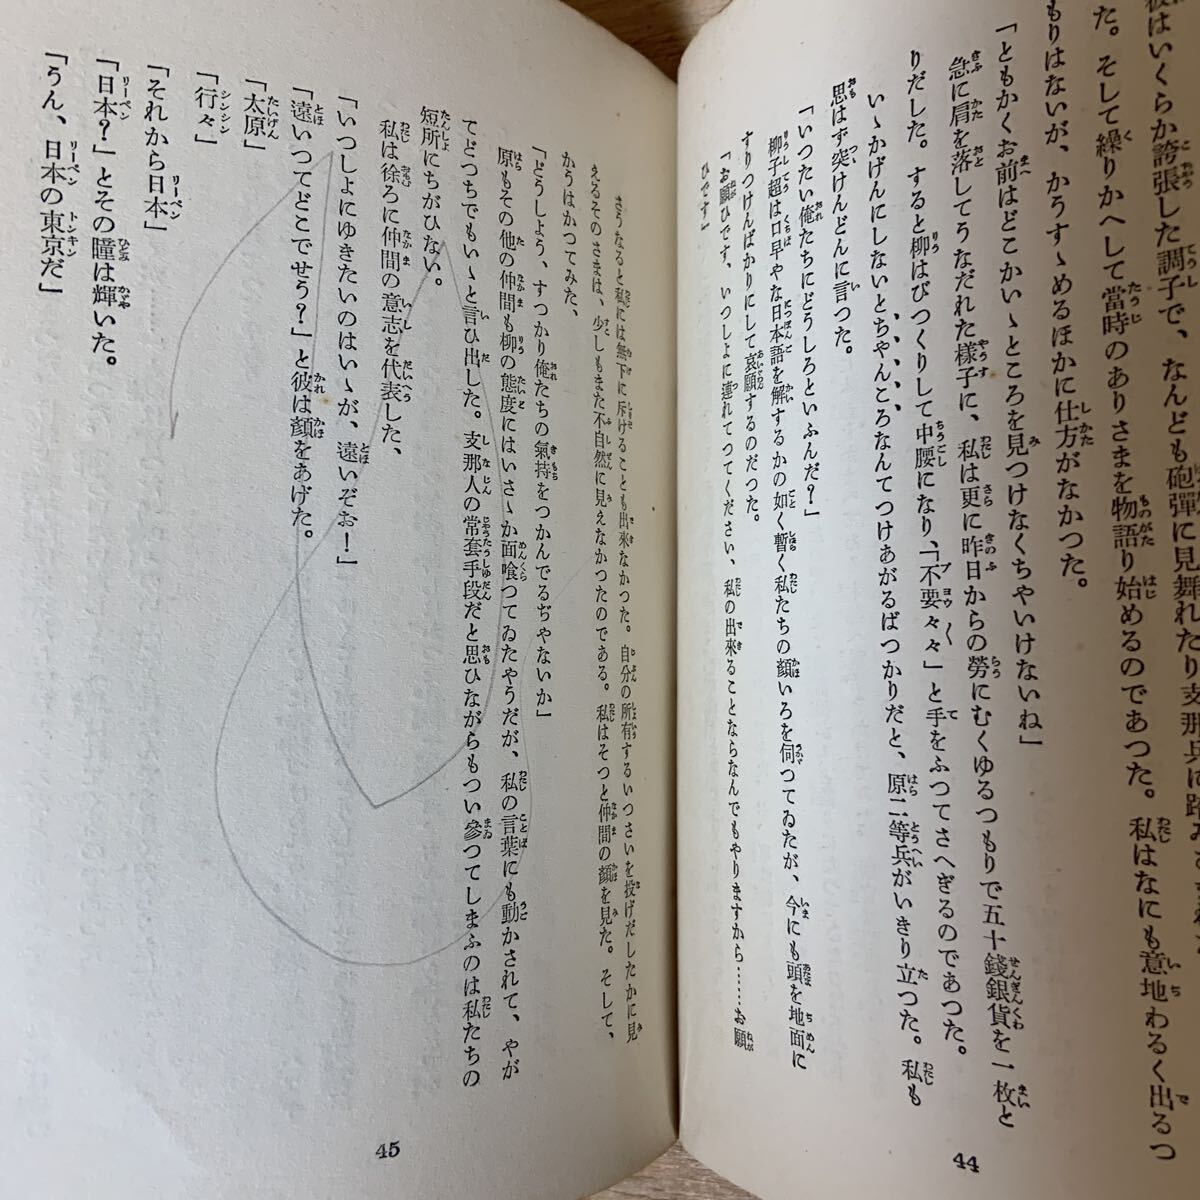 彼はいくらか誇張した調子で、なんども砲彈に見舞れたり支那兵に
た。そして繰りかへして當時のありさまを物語り始めるのであつた。私はなにも意地わるく出るつ
もりはないが、かうすゝめるほかに仕方がなかつた。
「ともかくお前はどこかいゝところを見つけなくちやいけないね」
急に肩を落してうなだれた樣子に、私は更に昨日からの勞にむくゆるつもりで五十錢銀貨を一枚と
りだした。すると柳はびつくりして中腰になり、「不要々々」と手をふつてさへぎるのであつた。
いゝかげんにしないとちやんころなんてつけあがるばつかりだと、原二等兵がいきり立つた。私も
思はず突けんどんに言つた。
「いつたい俺たちにどうしろといふんだ？」
柳子超は口早やな日本語を解するかの如く暫く私たちの顏いろを伺つてゐたが、今にも頭を地面に
すりつけんばかりにして哀願するのだつた。
「お願ひです、いつしよに連れてつてください、私の出來ることならなんでもやりますから……お願
ひです」
44
さうなると私には無下に斥けることも出來なかつた。自分の所有するいつさいを投げだしたかに見
えるそのさまは、少しもまた不自然に見えなかつたのである。私はそつと仲間の顏を見た。そして、
かうはかつてみた、
「どうしよう、すつかり俺たちの氣持をつかんでるぢやないか」
原もその他の仲間も柳の態度にはいさゝか面喰つてゐたやうだが、私の言葉にも動かされて、やが
てどつちでもいゝと言ひ出した。支那人の常套手段だと思ひながらもつい參つてしまふのは私たちの
短所にちがひない。
私は徐ろに仲間の意志を代表した、
「いつしよにゆきたいのはいゝが、遠いぞお！」
「遠いつてどこでせう？」と彼は顏をあげた。
「太原」
「行々」
「それから日本」
「日本？」とその瞳は輝いた。
「うん、日本の東京だ」
45